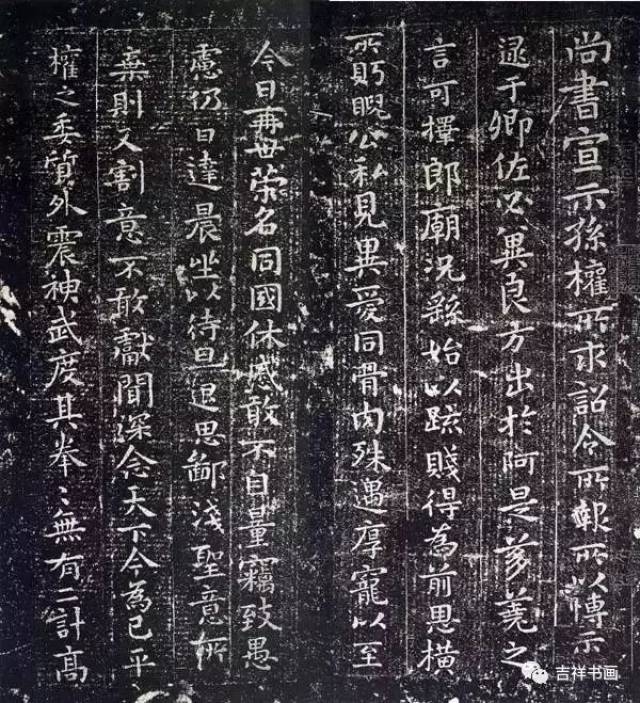 尚書宣示孫權所求詔令所報所以博示
逮于卿佐必異良方出於阿是芻蕘之
言可擇郎廟況繇始以疏賤得為前恩橫
所眄睨公私見異愛同骨肉殊遇厚寵以至
今日再世榮名同國休慼敢不自量竊致愚
慮仍日達晨坐以待旦退思鄙淺聖意所
棄則又割意不敢獻聞深念天下今為已平
權之委質外震神武度其拳〻無有二計高
吉祥书画